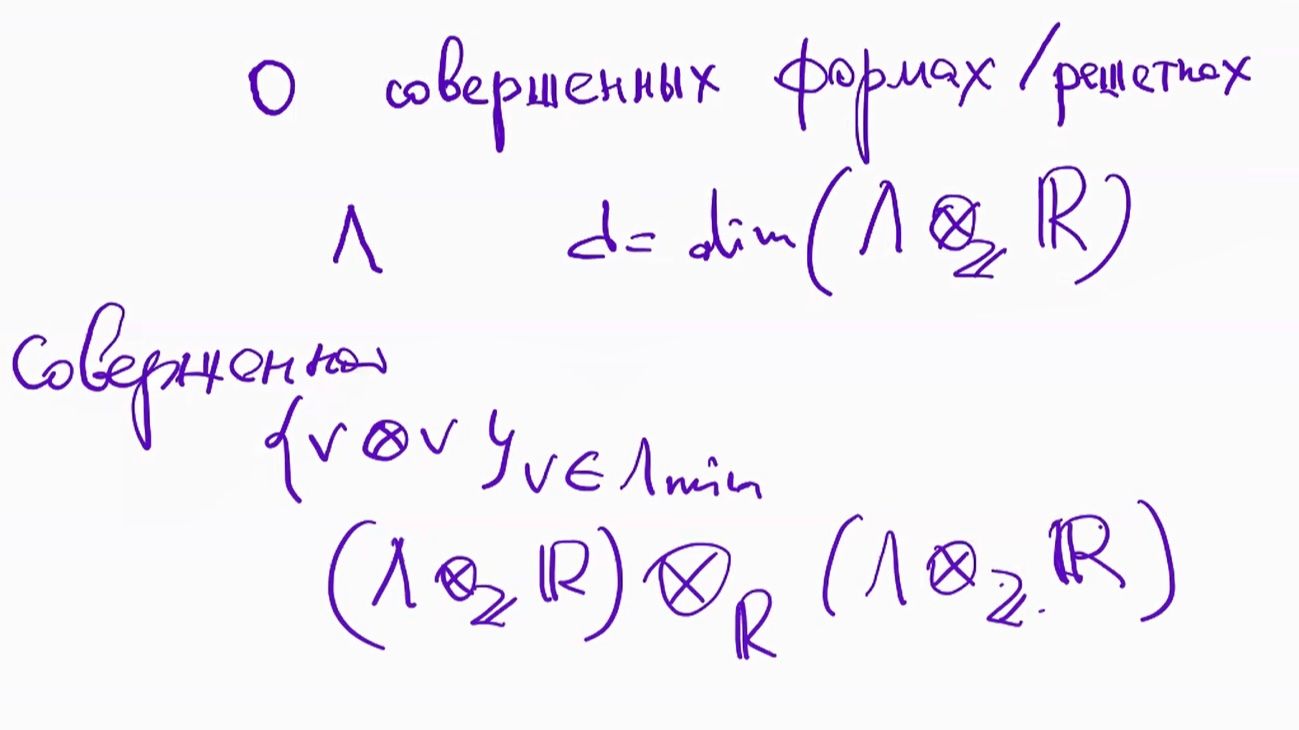 О совершенных формах / решетках
Λ d = dim(Λ ⊗_ℤ ℝ)
Совершенная
{v ⊗ v}_{v ∈ Λ_min}
(Λ ⊗_ℤ ℝ) ⊗_ℝ (Λ ⊗_ℤ ℝ)